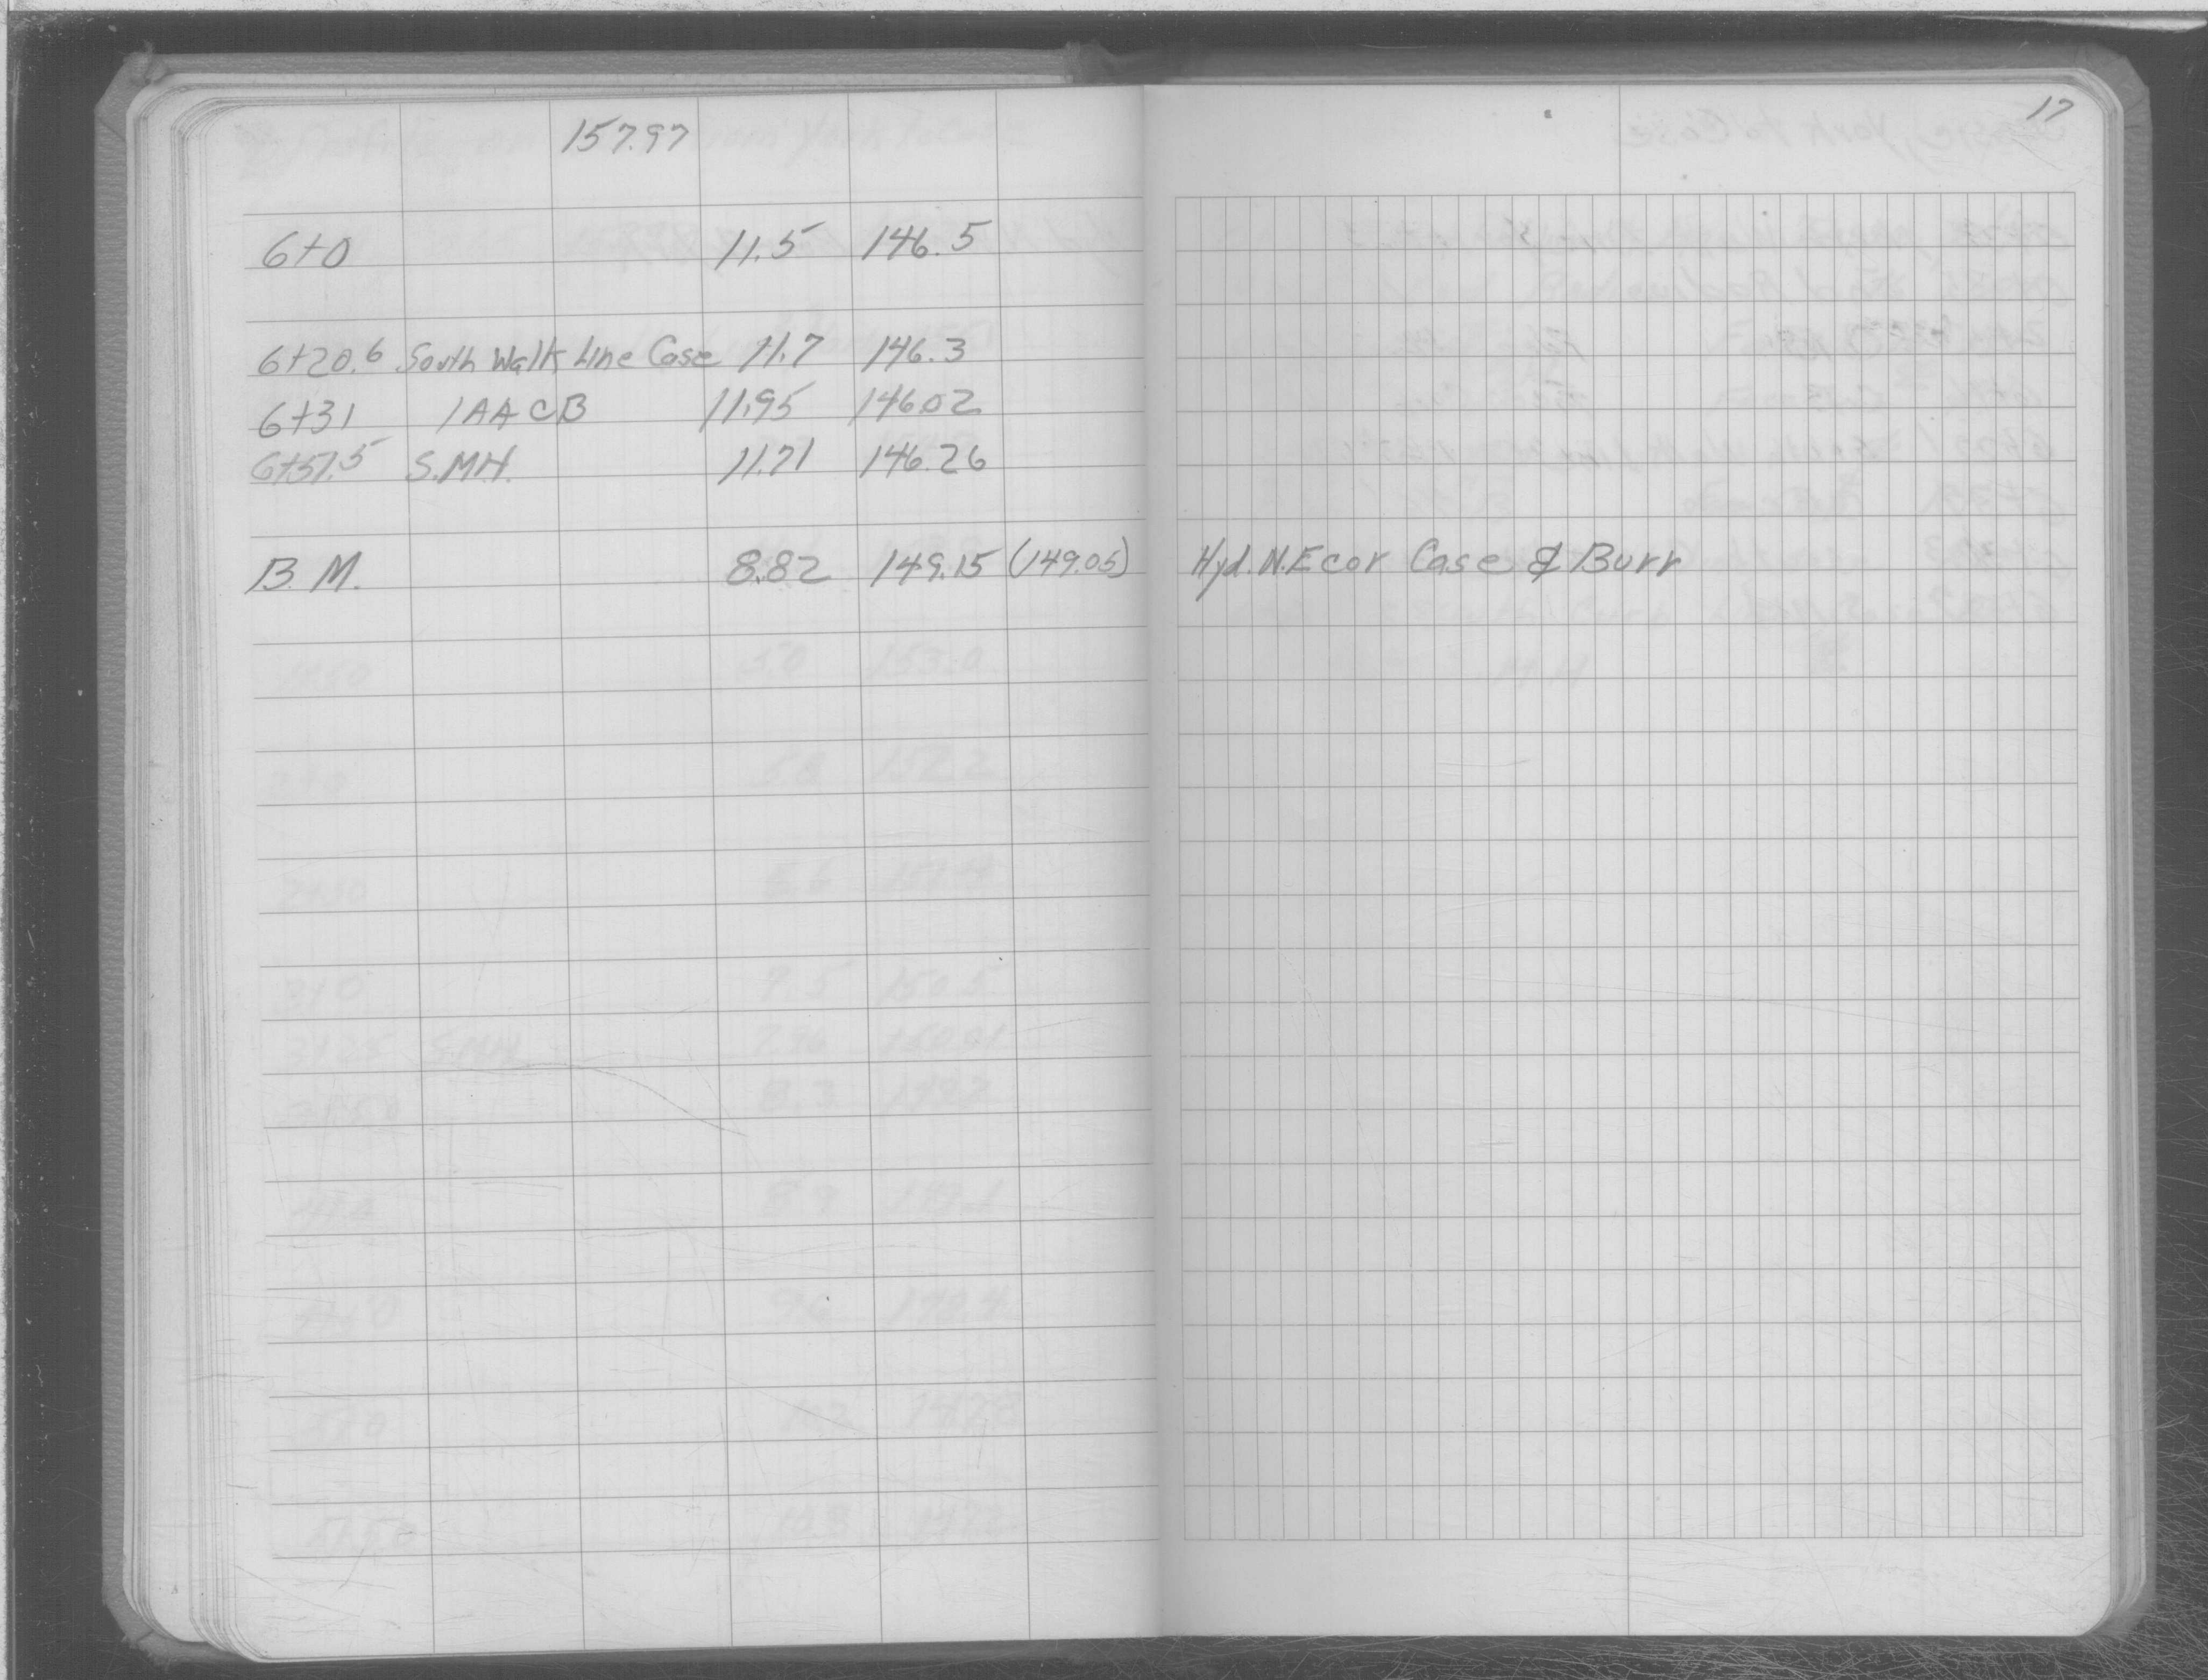 17
157.97
6+0 11.5 146.5
6+20.6 South Walk Line Case 11.7 146.3
6+31 1AACB 11.95 146.02
6+57.5 S.M.H. 11.71 146.26
B.M. 8.82 149.15 (149.05) Hyd. N.E cor Case & Burr